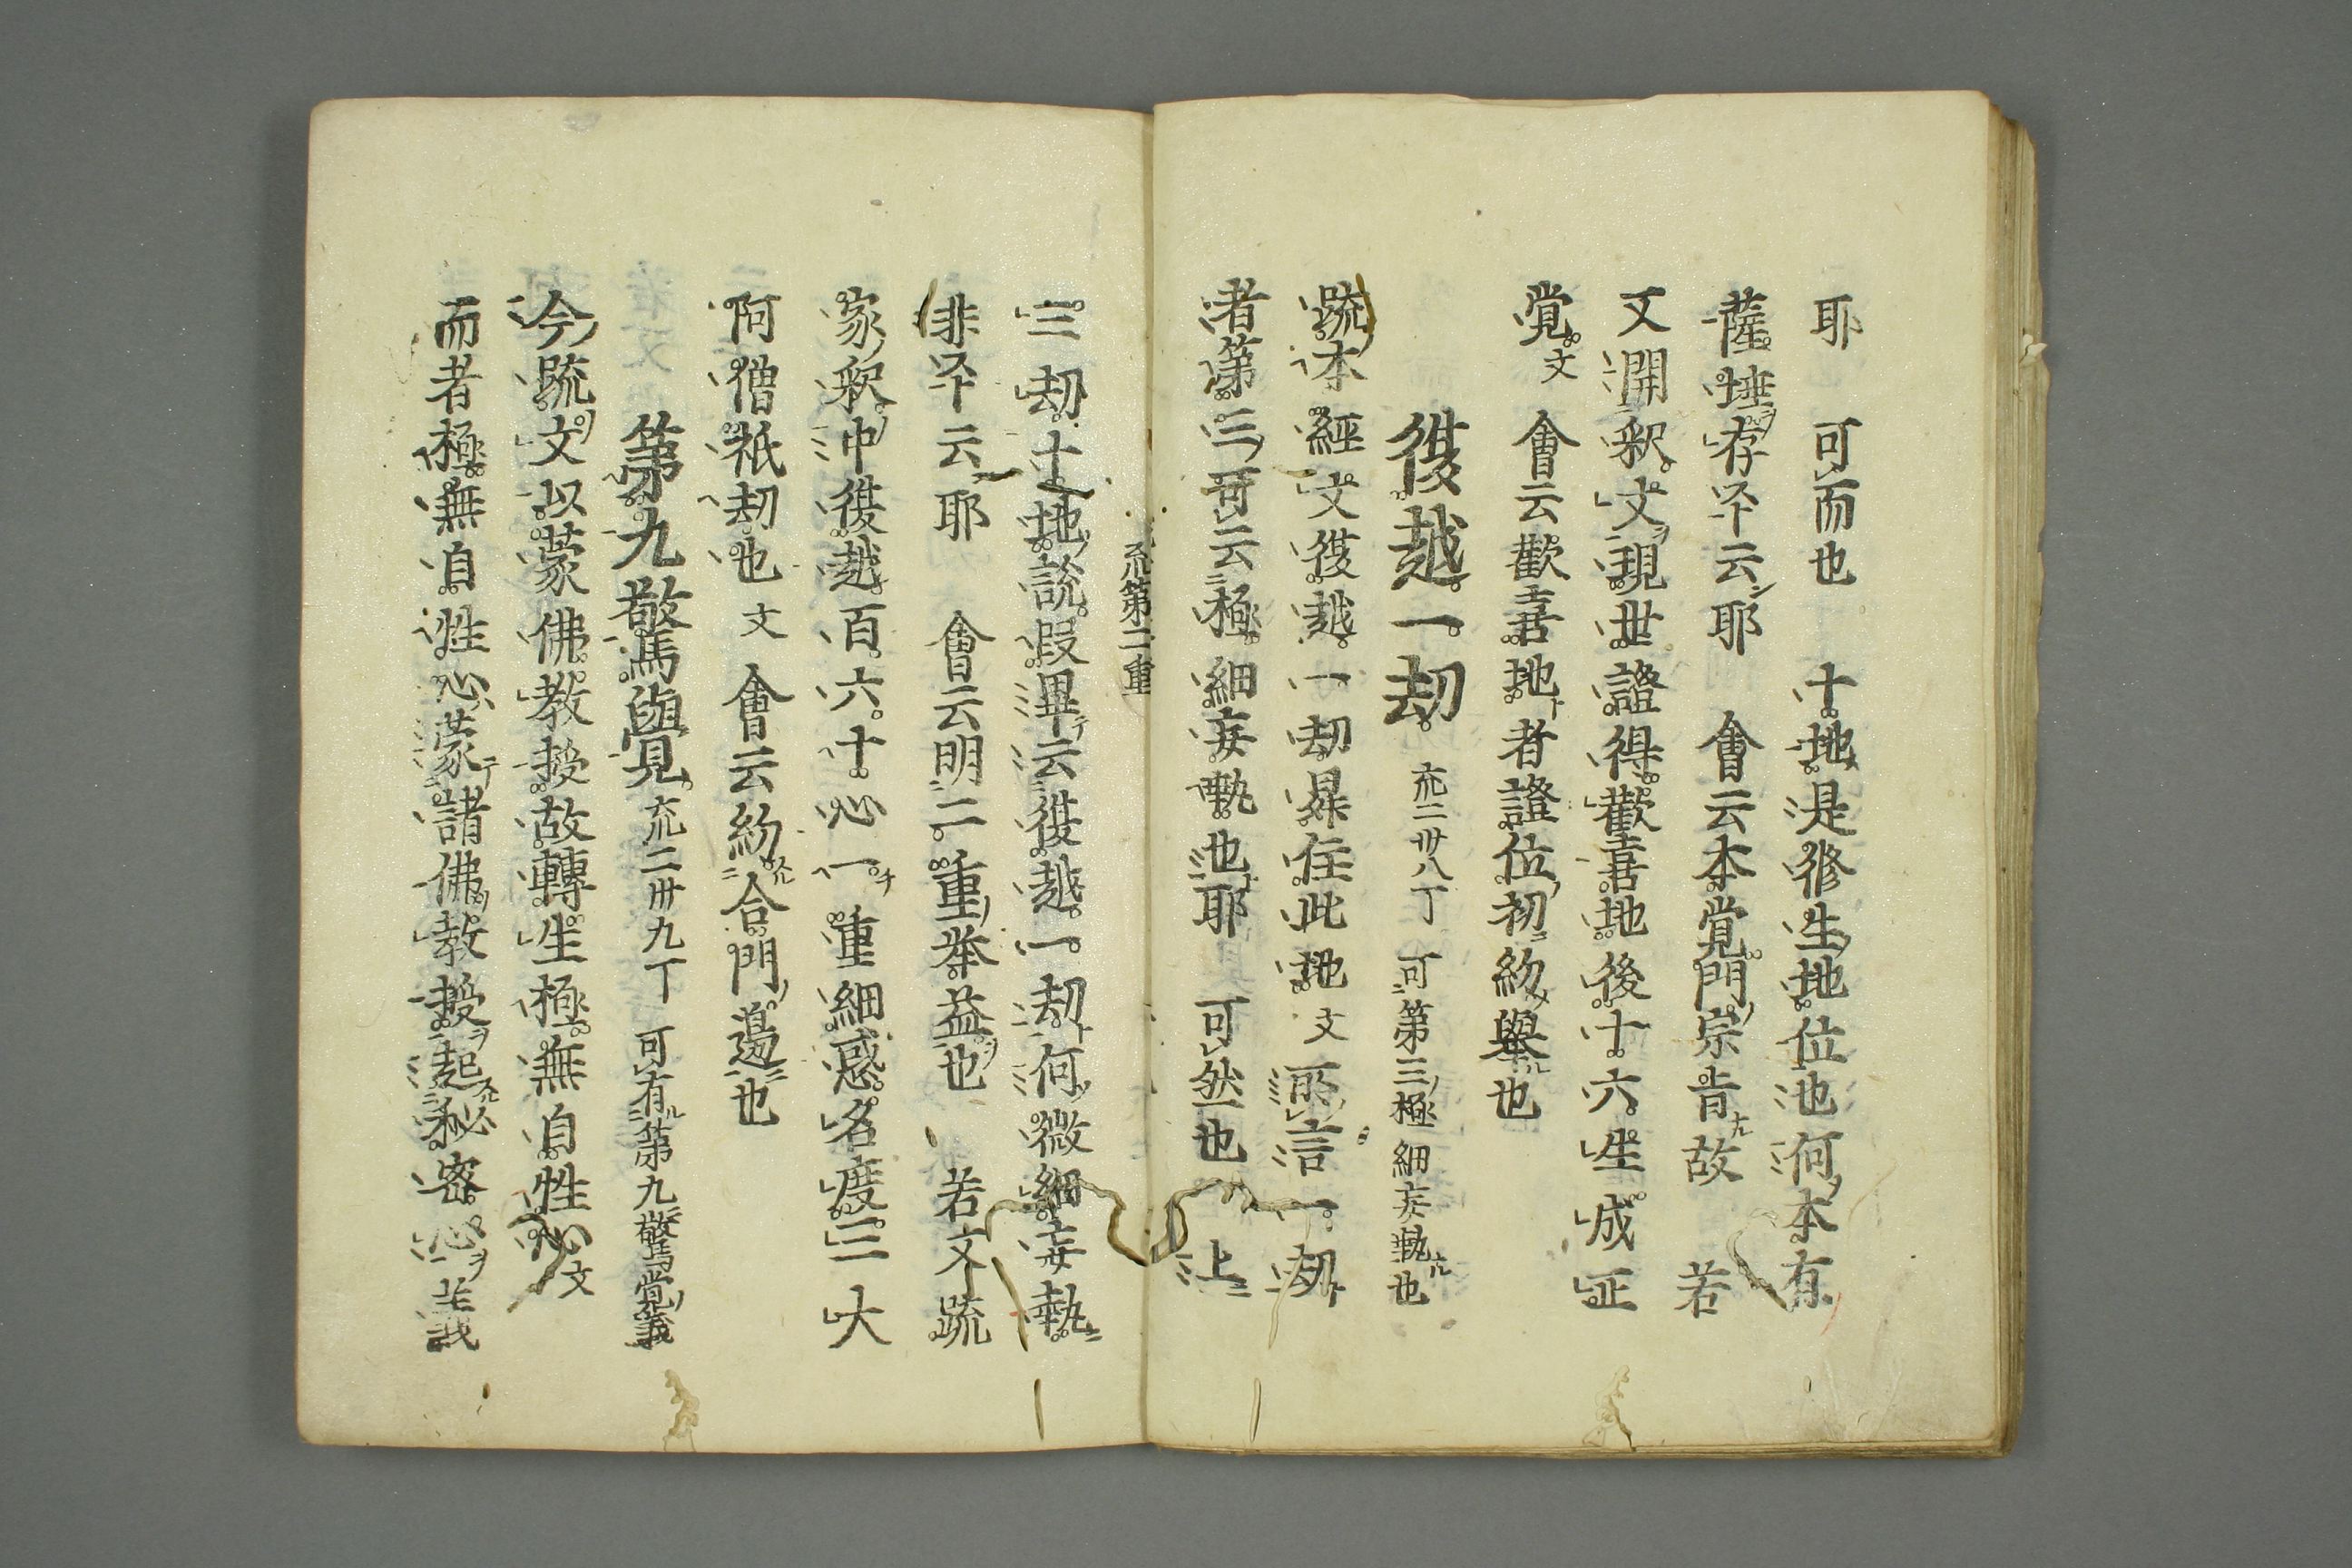 耶　可而也　十地是修生地位也何本有
薩埵存乎云耶　會云本覚門宗旨故　若
又開釈文現世證得歡喜地後十六生成正
覚文　會云歡喜地者證位初約舉也
復越一劫　二卅八丁　可第三極細妄執也
疏本經文復越一劫昇住此地文所言一劫
者第三可云極細妄執也耶　可然也　上
第二重
三劫十地說段畢云復越一劫何微細妄執
非乎云耶　會云明二重挙益也　若文疏
家釈中復越百六十心一重細惑名度三大
阿僧祇劫也文　會云約合門邊也
第九驚覺　二卅九丁　可有第九驚覚義
今疏文以蒙佛教授故轉生極無自性心文
而者極無自性心蒙諸佛教授起秘密心義